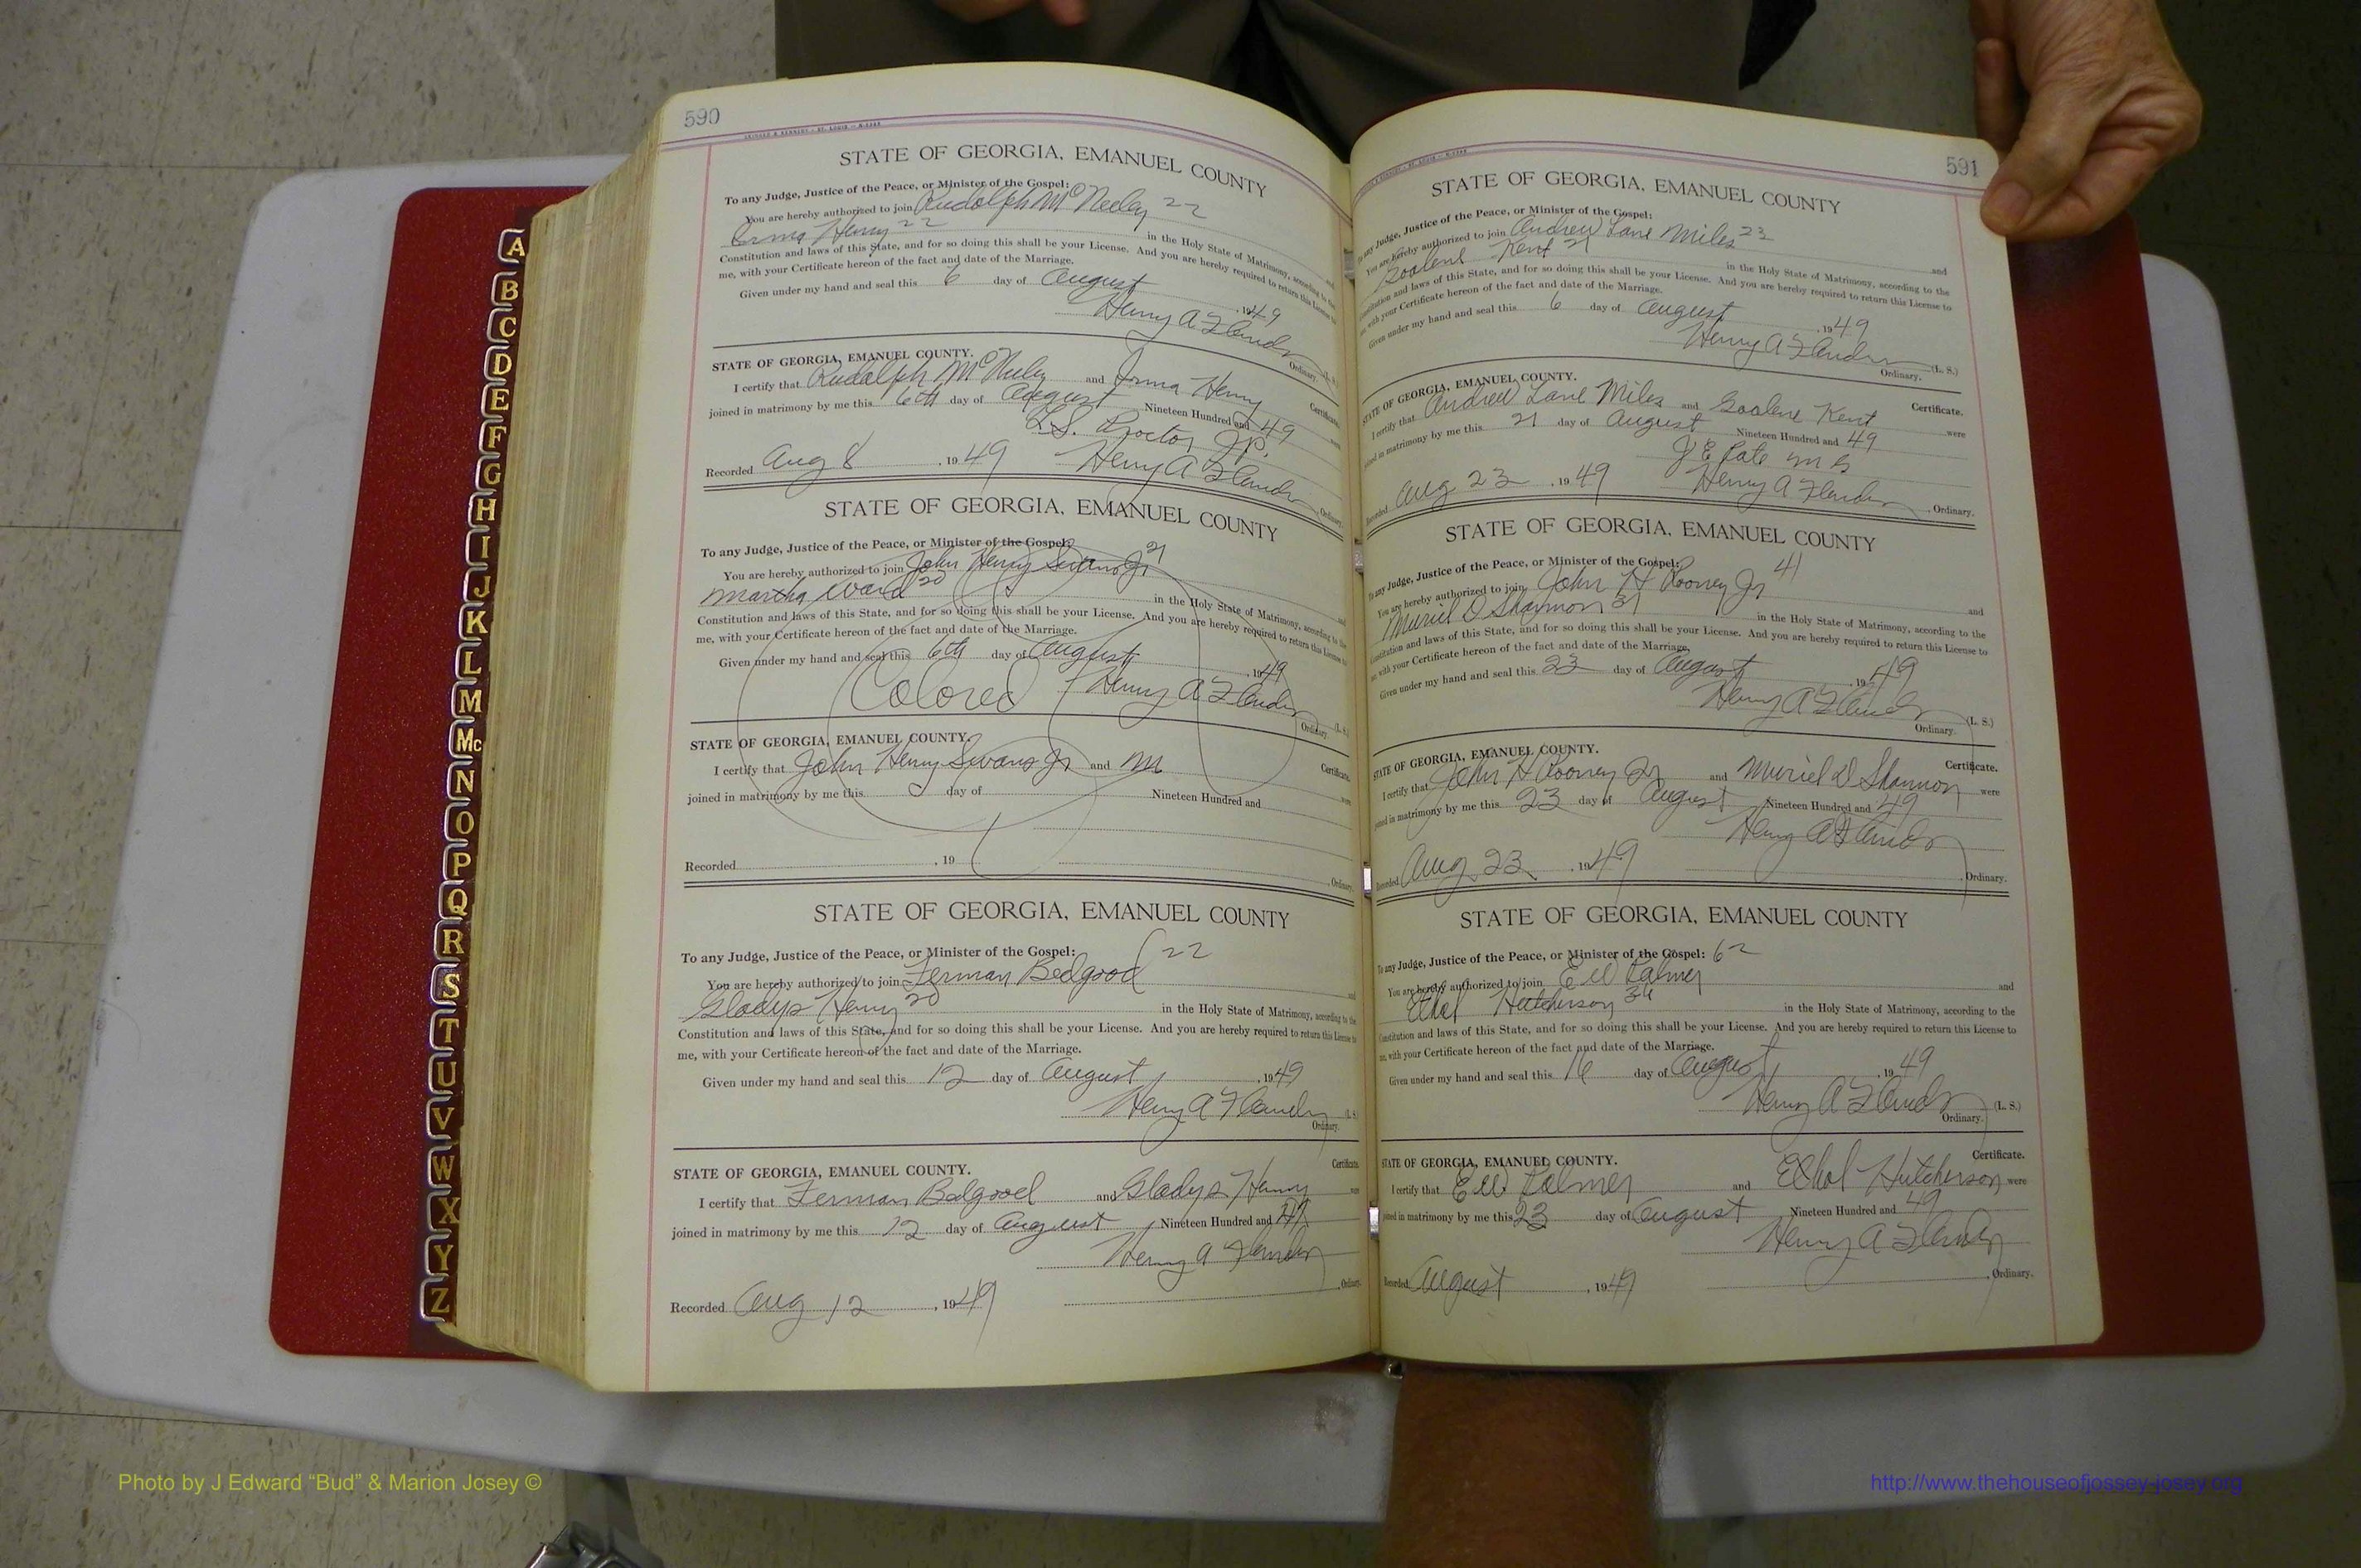 590
STATE OF GEORGIA, EMANUEL COUNTY
To any Judge, Justice of the Peace, or Minister of the Gospel:
You are hereby authorized to join Rudolph McNeeley 22
and
Irma Henry 22 in the Holy State of Matrimony, according to the
Constitution and laws of this State, and for so doing this shall be your License. And you are hereby required to return this License to
me, with your Certificate hereon of the fact and date of the Marriage.
Given under my hand and seal this 6 day of August, 1949
Henry A Flanders (L. S.)
Ordinary.
STATE OF GEORGIA, EMANUEL COUNTY. Certificate.
I certify that Rudolph McNeeley and Irma Henry were
joined in matrimony by me this 6th day of August Nineteen Hundred and 49
L.S. Proctor J.P.
Recorded Aug 8, 1949 Henry A Flanders, Ordinary.
STATE OF GEORGIA, EMANUEL COUNTY
To any Judge, Justice of the Peace, or Minister of the Gospel:
You are hereby authorized to join John Henry Swans Jr 21
and
Martha Ward 20 in the Holy State of Matrimony, according to the
Constitution and laws of this State, and for so doing this shall be your License. And you are hereby required to return this License to
me, with your Certificate hereon of the fact and date of the Marriage.
Given under my hand and seal this 6th day of August, 1949
Colored Henry A Flanders (L. S.)
Ordinary.
STATE OF GEORGIA, EMANUEL COUNTY. Certificate.
I certify that John Henry Swans Jr and M were
joined in matrimony by me this day of Nineteen Hundred and
Recorded , 19 , Ordinary.
STATE OF GEORGIA, EMANUEL COUNTY
To any Judge, Justice of the Peace, or Minister of the Gospel: 22
You are hereby authorized to join Ferman Bedgood and
Gladys Henry 20 in the Holy State of Matrimony, according to the
Constitution and laws of this State, and for so doing this shall be your License. And you are hereby required to return this License to
me, with your Certificate hereon of the fact and date of the Marriage.
Given under my hand and seal this 12 day of August, 1949
Henry A Flanders (L. S.)
Ordinary.
STATE OF GEORGIA, EMANUEL COUNTY. Certificate.
I certify that Ferman Bedgood and Gladys Henry were
joined in matrimony by me this 12 day of August Nineteen Hundred and 49
Henry A Flanders
Recorded Aug 12, 1949 , Ordinary.
591
STATE OF GEORGIA, EMANUEL COUNTY
To any Judge, Justice of the Peace, or Minister of the Gospel:
You are hereby authorized to join Andrew Lane Miles 23
and
Kent 21 in the Holy State of Matrimony, according to the
Constitution and laws of this State, and for so doing this shall be your License. And you are hereby required to return this License to
me, with your Certificate hereon of the fact and date of the Marriage.
Given under my hand and seal this 6 day of August, 1949
Henry A Flanders (L. S.)
Ordinary.
STATE OF GEORGIA, EMANUEL COUNTY. Certificate.
I certify that Andrew Lane Miles and Kent were
joined in matrimony by me this 21 day of August Nineteen Hundred and 49
J E Pate M G
Recorded Aug 23, 1949 Henry A Flanders, Ordinary.
STATE OF GEORGIA, EMANUEL COUNTY
To any Judge, Justice of the Peace, or Minister of the Gospel: 41
You are hereby authorized to join John H Rooney Jr and
Muriel D Shannon 37 in the Holy State of Matrimony, according to the
Constitution and laws of this State, and for so doing this shall be your License. And you are hereby required to return this License to
me, with your Certificate hereon of the fact and date of the Marriage.
Given under my hand and seal this 23 day of August, 1949
Henry A Flanders (L. S.)
Ordinary.
STATE OF GEORGIA, EMANUEL COUNTY. Certificate.
I certify that John H Rooney Jr and Muriel D Shannon were
joined in matrimony by me this 23 day of August Nineteen Hundred and 49
Henry A Flanders
Recorded Aug 23, 1949 , Ordinary.
STATE OF GEORGIA, EMANUEL COUNTY
To any Judge, Justice of the Peace, or Minister of the Gospel: 62
You are hereby authorized to join E W Palmer and
Ethel Hutcherson 36 in the Holy State of Matrimony, according to the
Constitution and laws of this State, and for so doing this shall be your License. And you are hereby required to return this License to
me, with your Certificate hereon of the fact and date of the Marriage.
Given under my hand and seal this 16 day of August, 1949
Henry A Flanders (L. S.)
Ordinary.
STATE OF GEORGIA, EMANUEL COUNTY. Certificate.
I certify that E W Palmer and Ethel Hutcherson were
joined in matrimony by me this 23 day of August Nineteen Hundred and 49
Henry A Flanders
Recorded August, 1949 , Ordinary.
A
B
C
D
E
F
G
H
I
J
K
L
M
Mc
N
O
P
Q
R
S
T
U
V
W
X
Y
Z
Photo by J Edward “Bud” & Marion Josey ©
http://www.thehouseofjossey-josey.org